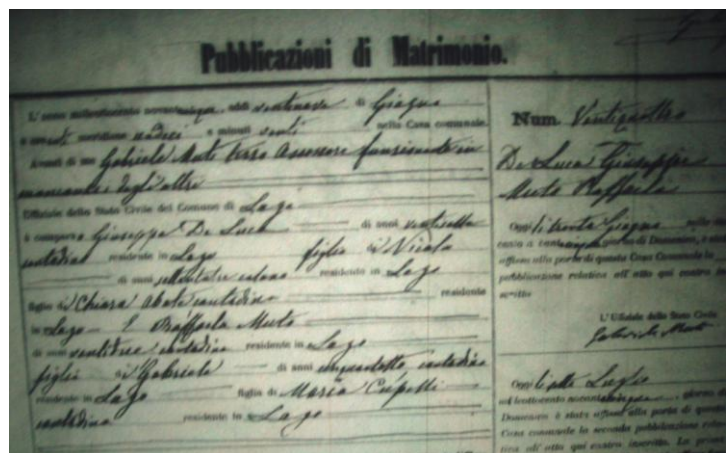 Pubblicazioni di Matrimonio.
L'anno milleottocento novantacinque addì ventinove di Giugno
a ore anti meridiane undici e minuti venti, nella Casa comunale.
Avanti di me Gabriele Muto terzo Assessore funzionante in
mancanza degli altri
Uffiziale dello Stato Civile del Comune di Lago
è comparso Giuseppe De Luca di anni ventisette
contadino residente in Lago figlio di Nicola
di anni residente in Lago
figlio di Chiara Abate contadina residente
in Lago E Raffaela Muto
di anni ventitre contadina residente in Lago
figlia di Gabriele di anni cinquantotto contadino
residente in Lago figlia di Maria Cupelli
contadina residente in Lago
Num. Ventiquattro
De Luca Giuseppe
Muto Raffaela
Oggi li trenta Giugno mille
cento e novantacinque giorno di Domenica, è
affissa alla porta di questa Casa Comunale la
pubblicazione relativa all'atto qui contro
scritto
L'Uffiziale dello Stato Civile
Gabriele Muto
Oggi li sette Luglio
milleottocento novantacinque, giorno
Domenica è stata affissa alla porta di questa
Casa comunale la seconda pubblicazione
all'atto qui contro inscritto. La prima